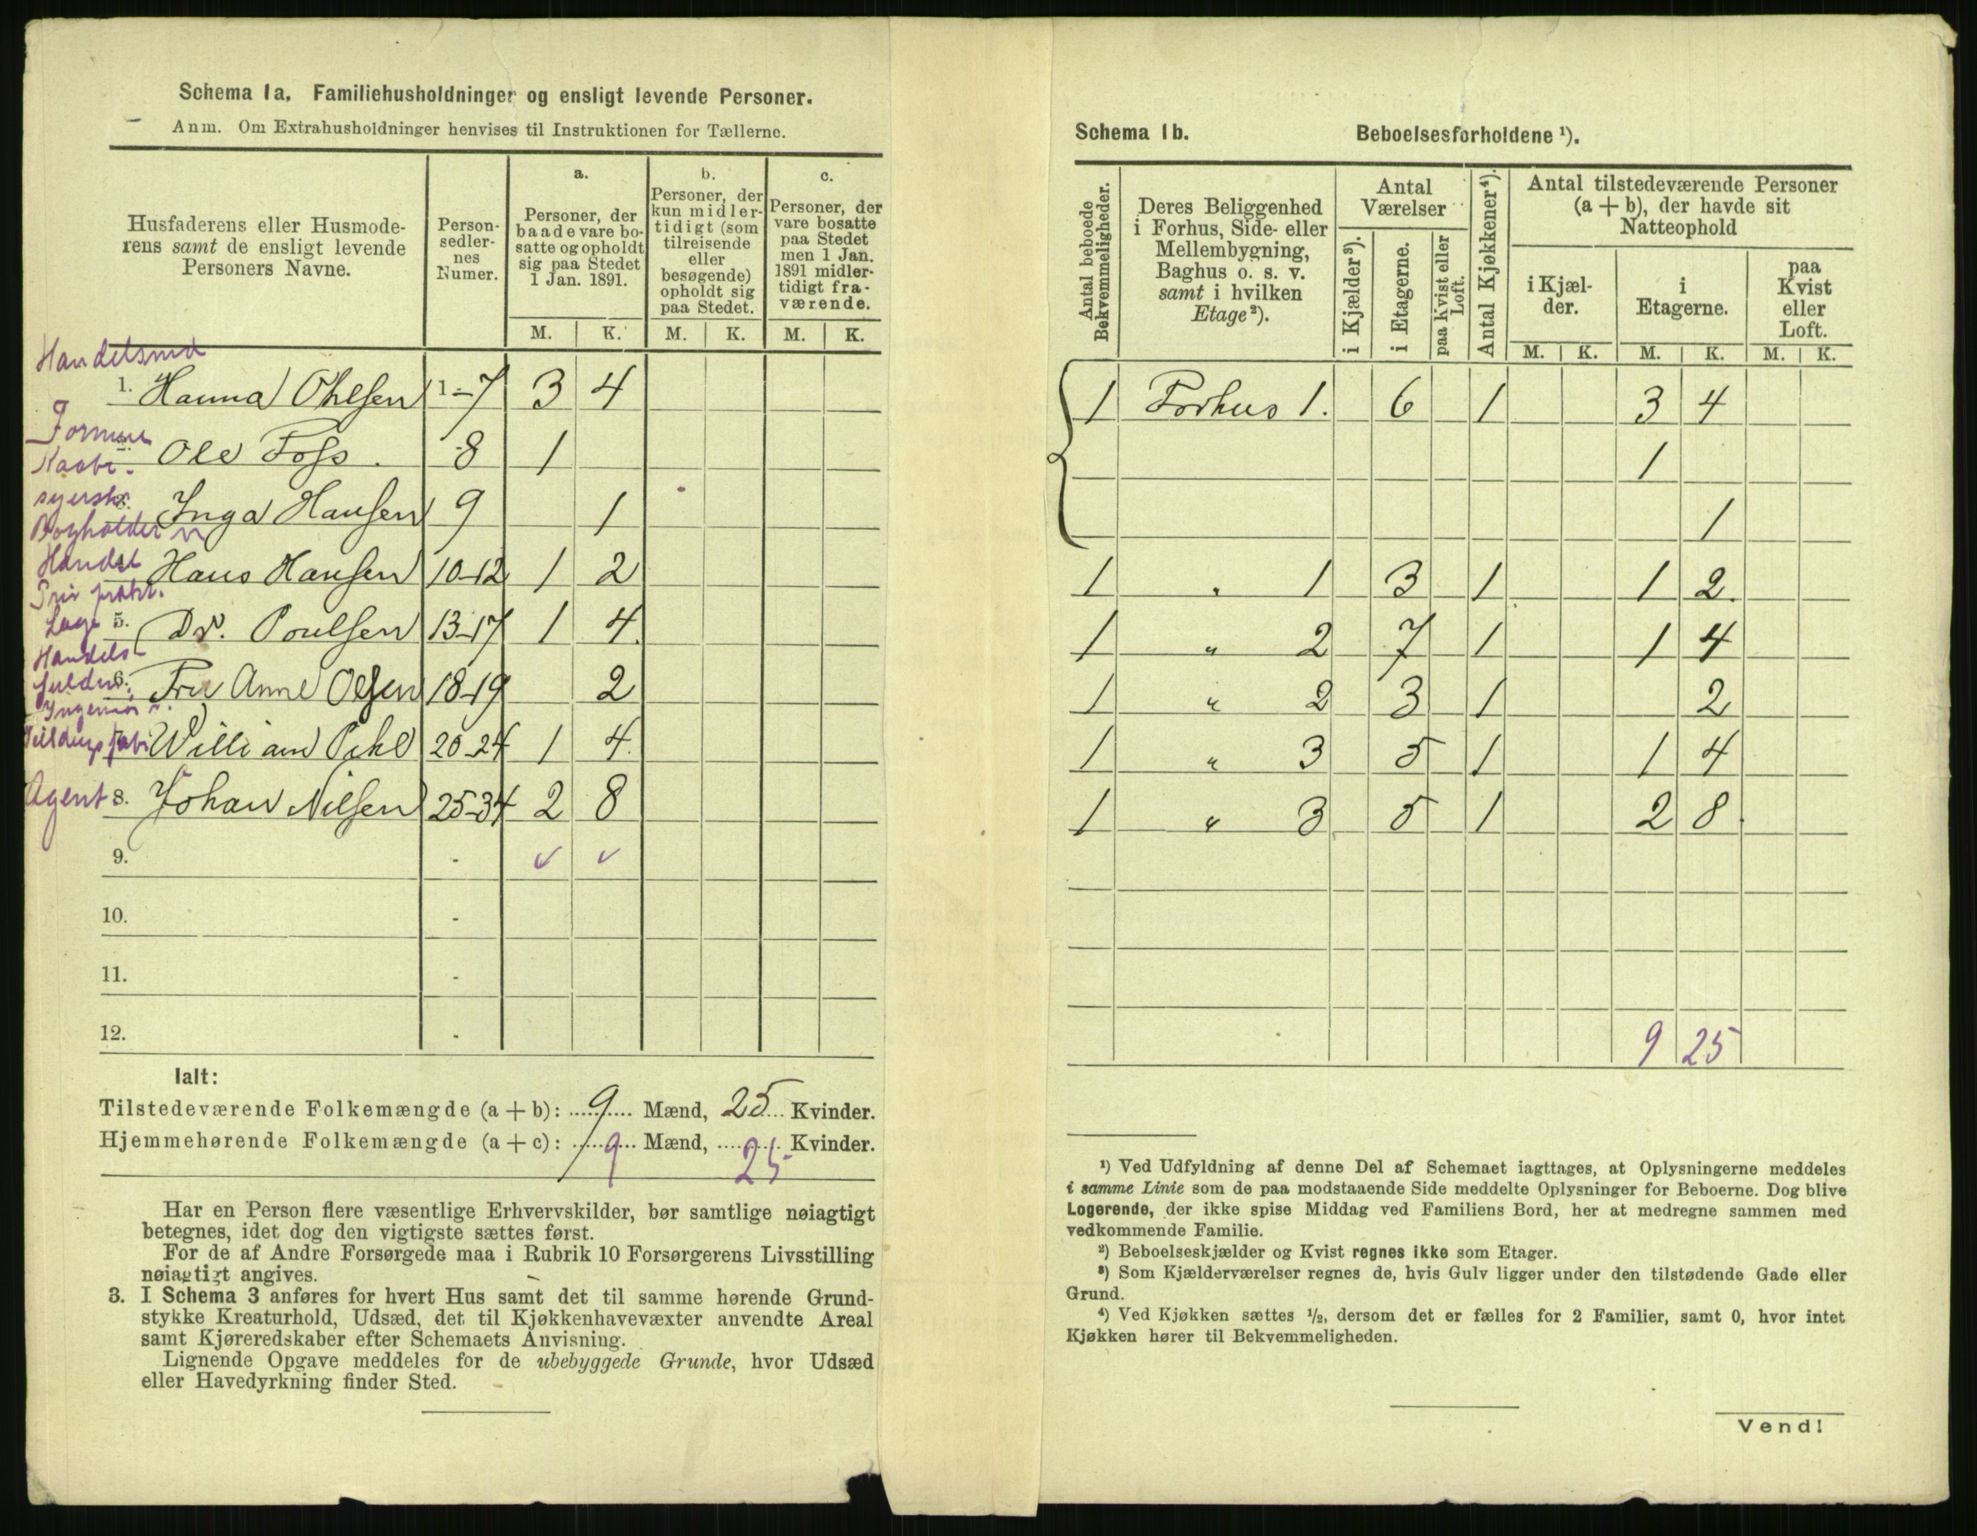 Schema 1a. Familiehusholdninger og ensligt levende Personer.
Anm. Om Extrahusholdninger henvises til Instruktionen for Tællerne.
Husfaderens eller Husmoderens samt de ensligt levende Personers Navne.
Person-sedler-nes Numer.
a. Personer, der baade vare bosatte og opholdt sig paa Stedet 1 Jan. 1891.
b. Personer, der kun midlertidigt (som tilreisende eller besøgende) opholdt sig paa Stedet.
c. Personer, der vare bosatte paa Stedet men 1 Jan. 1891 midlertidigt fraværende.
M. K. M. K. M. K.
Handelsmd
1. Hanna Ohlsen 1-7 3 4
Ole Foss. 8 1
Inga Hansen 9 1
Bogholder
Handel
Hans Hansen 10-12 1 2
Priv prakt.
5. Dr. Poulsen 13-17 1 4
Handels
6. Fru Anne Olsen 18-19 2
Ingeniør
William Pihl 20-24 1 4
Agent 8. Johan Nilsen 25-34 2 8
9. - v v
10. -
11. -
12. -
Ialt:
Tilstedeværende Folkemængde (a + b): 9 Mænd, 25 Kvinder.
Hjemmehørende Folkemængde (a + c): 9 Mænd, 25 Kvinder.
Har en Person flere væsentlige Erhvervskilder, bør samtlige nøiagtigt
betegnes, idet dog den vigtigste sættes først.
For de af Andre Forsørgede maa i Rubrik 10 Forsørgerens Livsstilling
nøiagtigt angives.
3. I Schema 3 anføres for hvert Hus samt det til samme hørende Grund-
stykke Kreaturhold, Udsæd, det til Kjøkkenhavevæxter anvendte Areal
samt Kjøreredskaber efter Schemaets Anvisning.
Lignende Opgave meddeles for de ubebyggede Grunde, hvor Udsæd
eller Havedyrkning finder Sted.
Schema 1b. Beboelsesforholdene ¹).
Antal beboede Bekvemmeligheder.
Deres Beliggenhed i Forhus, Side- eller Mellembygning, Baghus o. s. v. samt i hvilken Etage²).
Antal Værelser
i Kjælder³).
i Etagerne.
paa Kvist eller Loft.
Antal Kjøkkener⁴).
Antal tilstedeværende Personer (a + b), der havde sit Natteophold
i Kjælder.
i Etagerne.
paa Kvist eller Loft.
M. K. M. K. M. K.
1 Forhus 1. 6 1 3 4
1
1
1 " 1 3 1 1 2
1 " 2 7 1 1 4
1 " 2 3 1 2
1 " 3 5 1 1 4
1 " 3 5 1 2 8
9 25
¹) Ved Udfyldning af denne Del af Schemaet iagttages, at Oplysningerne meddeles
i samme Linie som de paa modstaaende Side meddelte Oplysninger for Beboerne. Dog blive
Logerende, der ikke spise Middag ved Familiens Bord, her at medregne sammen med
vedkommende Familie.
²) Beboelseskjælder og Kvist regnes ikke som Etager.
³) Som Kjælderværelser regnes de, hvis Gulv ligger under den tilstødende Gade eller
Grund.
⁴) Ved Kjøkken sættes ½, dersom det er fælles for 2 Familier, samt 0, hvor intet
Kjøkken hører til Bekvemmeligheden.
Vend!